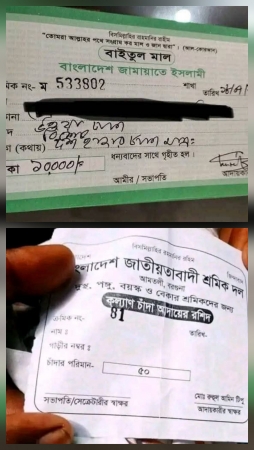 বিসমিল্লাহির রাহমানির রাহিম
"তোমরা আল্লাহর পথে সংগ্রাম কর মাল ও জান দ্বারা"। (আল-কোরআন)
বাইতুল মাল
বাংলাদেশ জামায়াতে ইসলামী
মিক নং- ম 533802 শাখা
তারিখ
(কথায়) দশ হাজার টাকা মাত্র
ধন্যবাদের সাথে গৃহীত হল।
কা ১০০০০/=
আমীর / সভাপতি আদায়কা
বিসমিল্লাহির রাহমানির রাহিম
বাংলাদেশ জাতীয়তাবাদী শ্রমিক দল
আমতলী, বরগুনা
দুস্থ, পঙ্গু, বয়স্ক ও বেকার শ্রমিকদের জন্য
কল্যাণ চাঁদা আদায়ের রশিদ
ক্রমিক নং- 81
নাম : তারিখ-
গাড়ীর নম্বর :
চাঁদার পরিমান- ৫০
মোঃ রুহুল আমিন টিপু
সভাপতি/সেক্রেটারীর স্বাক্ষর আদায়কারীর স্বাক্ষর